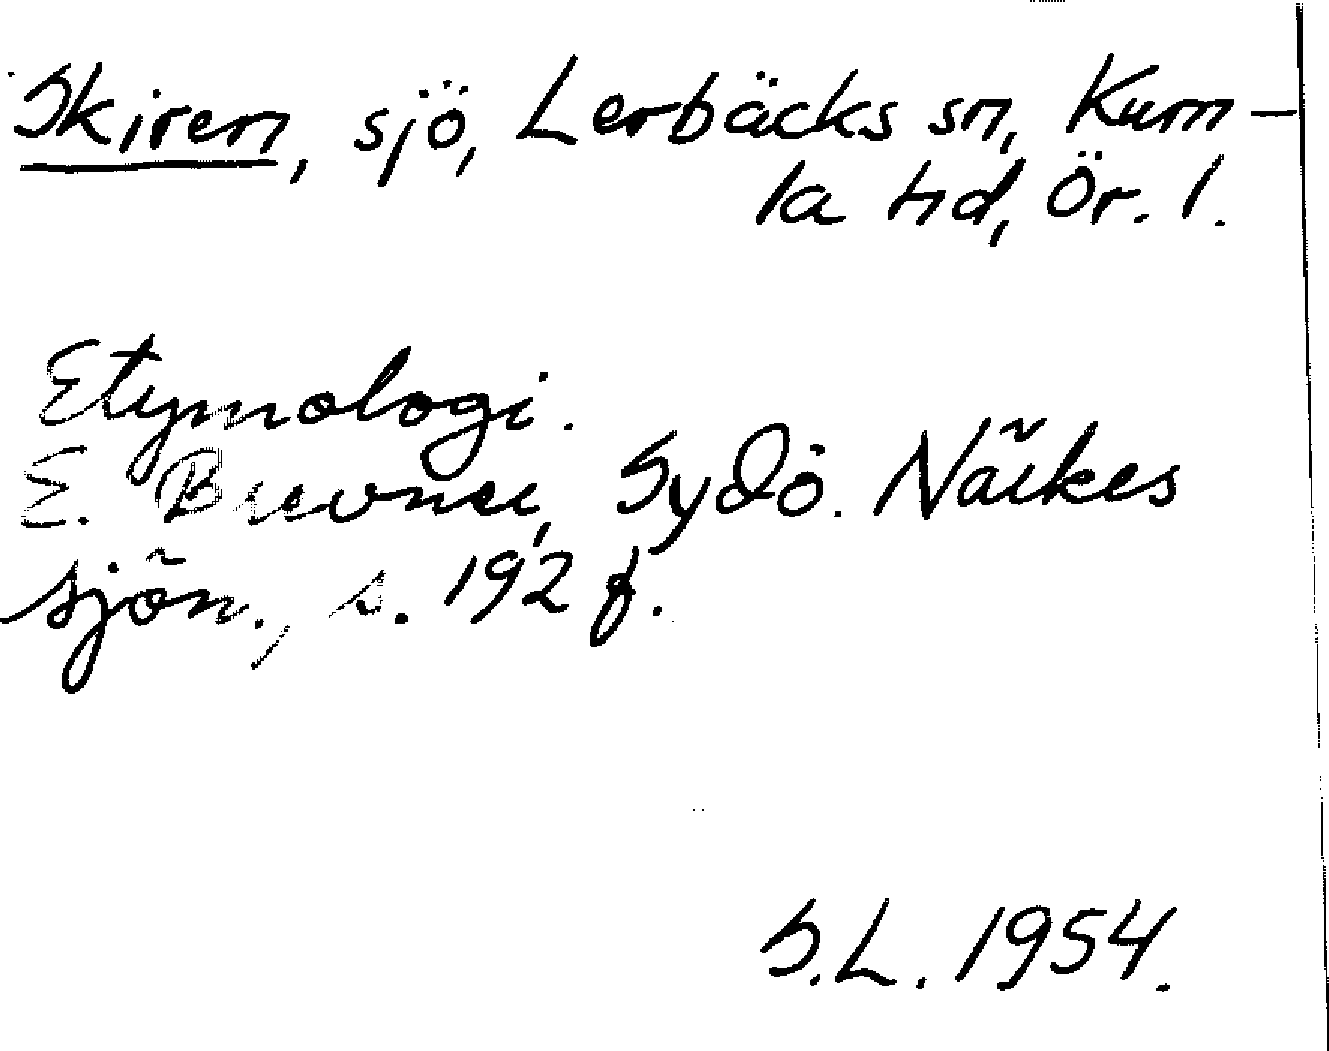 Skiren, sjö, Lerbäcks sn, Kum-
la hd, Ör. l.
Etymologi.
E. Brevner, Sydö. Närkes
sjön., s. 192 f.
S.L. 1954.